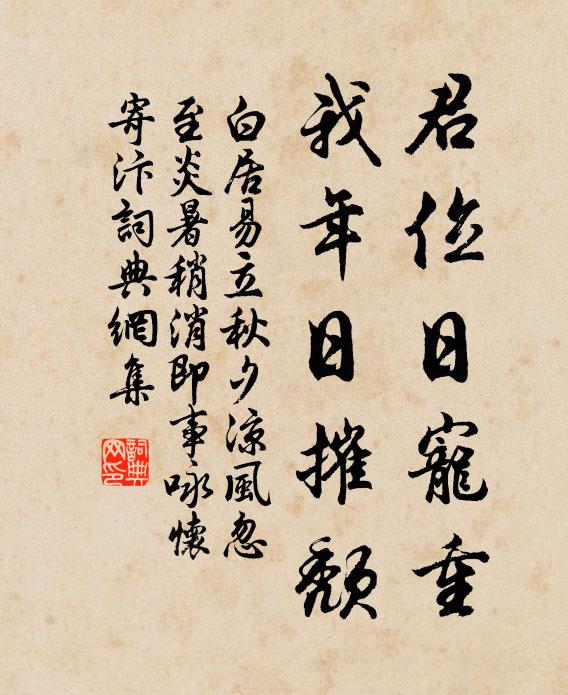 君位日寵重
我年日摧頹
白居易立秋夕涼風忽
至炎暑稍消即事咏懷
寄汴詞典網集
詞典网印